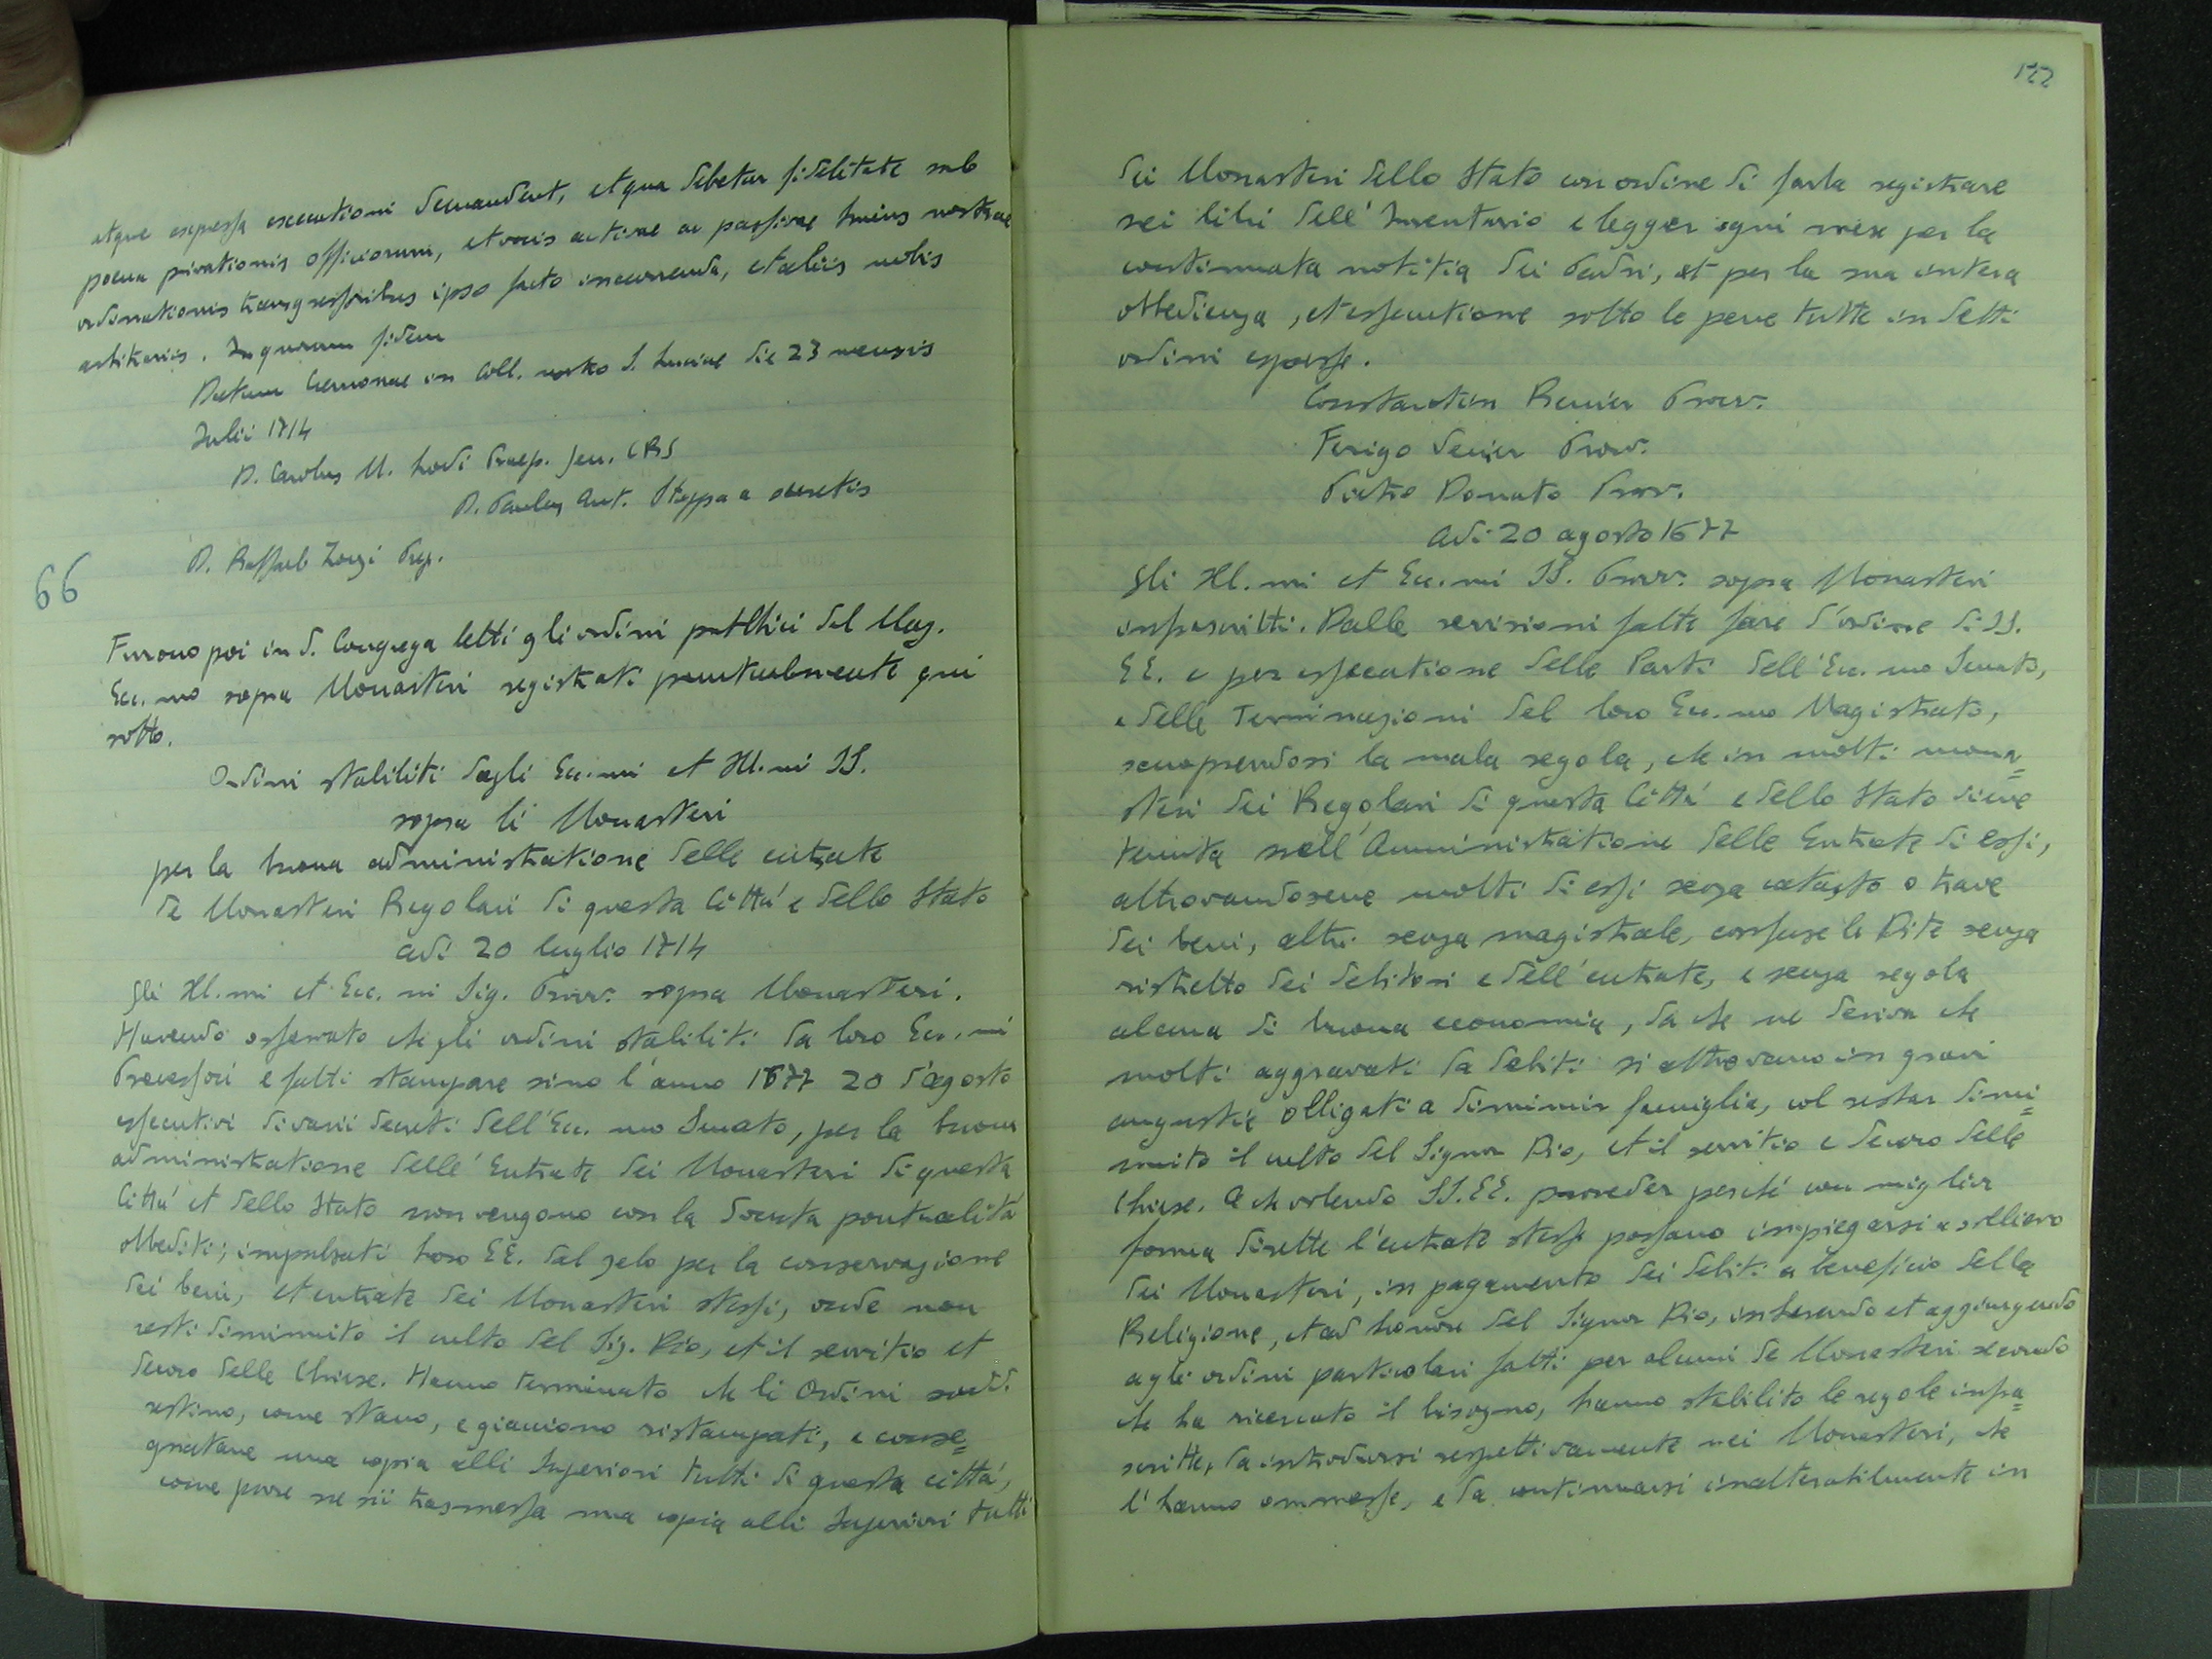 atque expressa executioni demandent, et qua debetur fidelitate sub
poena privationis officiorum, et vocis activae ac passivae huius nostrae
ordinationis transgressoribus ipso facto incurrenda, et aliis nobis
arbitrariis. In quorum fidem
Datum Cremonae in Coll. nostro S. Luciae die 23 mensis
Julii 1714
D. Carolus M. Lodi Praep. Gen. CRS
D. Paulus Ant. Stoppa a secretis
D. Raffael Zorzi Prep.
66
Furono poi in d. Congrega letti gli ordini pubblici del Mag.
Ecc.mo sopra Monasteri registrati puntualmente qui
sotto.
Ordini stabiliti dagli Ecc.mi et Ill.mi SS.
sopra li Monasteri
per la buona administratione delle entrate
de Monasteri Regolari di questa Città e dello Stato
adi 20 luglio 1714
Gli Ill.mi et Ecc.mi Sig. Provv. sopra Monasteri.
Havendo osservato che gli ordini stabiliti da loro Ecc.mi
Precessori e fatti stampare sino l'anno 1677 20 d'agosto
essecutivi di varii decreti dell'Ecc.mo Senato, per la buona
administratione delle Entrate dei Monasteri di questa
Città et dello Stato non vengono con la dovuta pontualità
obbediti; impulsati loro EE. dal zelo per la conservazione
dei beni, et entrate dei Monasteri stessi, onde non
resti diminuito il culto del Sig. Dio, et il servitio et
decoro delle Chiese. Hanno terminato che li Ordini sudd.
restino, come stano, e giaciono ristampati, e conse=
gnatane una copia alli Superiori tutti di questa città,
come pure ne sii trasmessa una copia alli Superiori tutti
122
dei Monasteri dello Stato con ordine di farla registrare
nei libri dell'Inventario e legger ogni mese per la
continuata notitia dei Padri, et per la sua intera
obbedienza, et essecutione sotto le pene tutte in detti
ordini espresse.
Constantin Renier Provv.
Ferigo Venier Provv.
Pietro Donato Provv.
Adi 20 agosto 1677
Gli Ill.mi et Ecc.mi SS. Provv. sopra Monasteri
infrascritti. Dalle revisioni fatte fare d'ordine di SS.
EE. e per essecutione delle Parti dell'Ecc.mo Senato,
e delle Terminazioni del loro Ecc.mo Magistrato,
scoprendosi la mala regola, che in molti mona=
steri dei Regolari di questa Città e dello Stato viene
tenuta nell'Amministratione delle Entrate di essi,
attrovandosene molti di essi senza catasto o trave
dei beni, altri senza magistrale, confuse le Dite senza
ristretto dei debitori e dell'entrate, e senza regola
alcuna di buona economia, da che ne deriva che
molti aggravati da debiti si attrovano in gravi
angustie obligati a diminuir famiglia, col restar dimi=
nuito il culto del Signor Dio, et il servitio e decoro delle
Chiese. Che volendo SS.EE. proveder perché con miglior
forma dirette l'entrate stesse possano impiegarsi a sollievo
dei Monasteri, in pagamento dei debiti a beneficio della
Religione, et ad honore del Signor Dio, inherendo et aggiungendo
agli ordini particolari fatti per alcuni de Monasteri secondo
che ha ricercato il bisogno, hanno stabilito le regole infra=
scritte, da introdursi respettivamente nei Monasteri, che
l'hanno ommesse, e da continuarsi inalterabilmente in